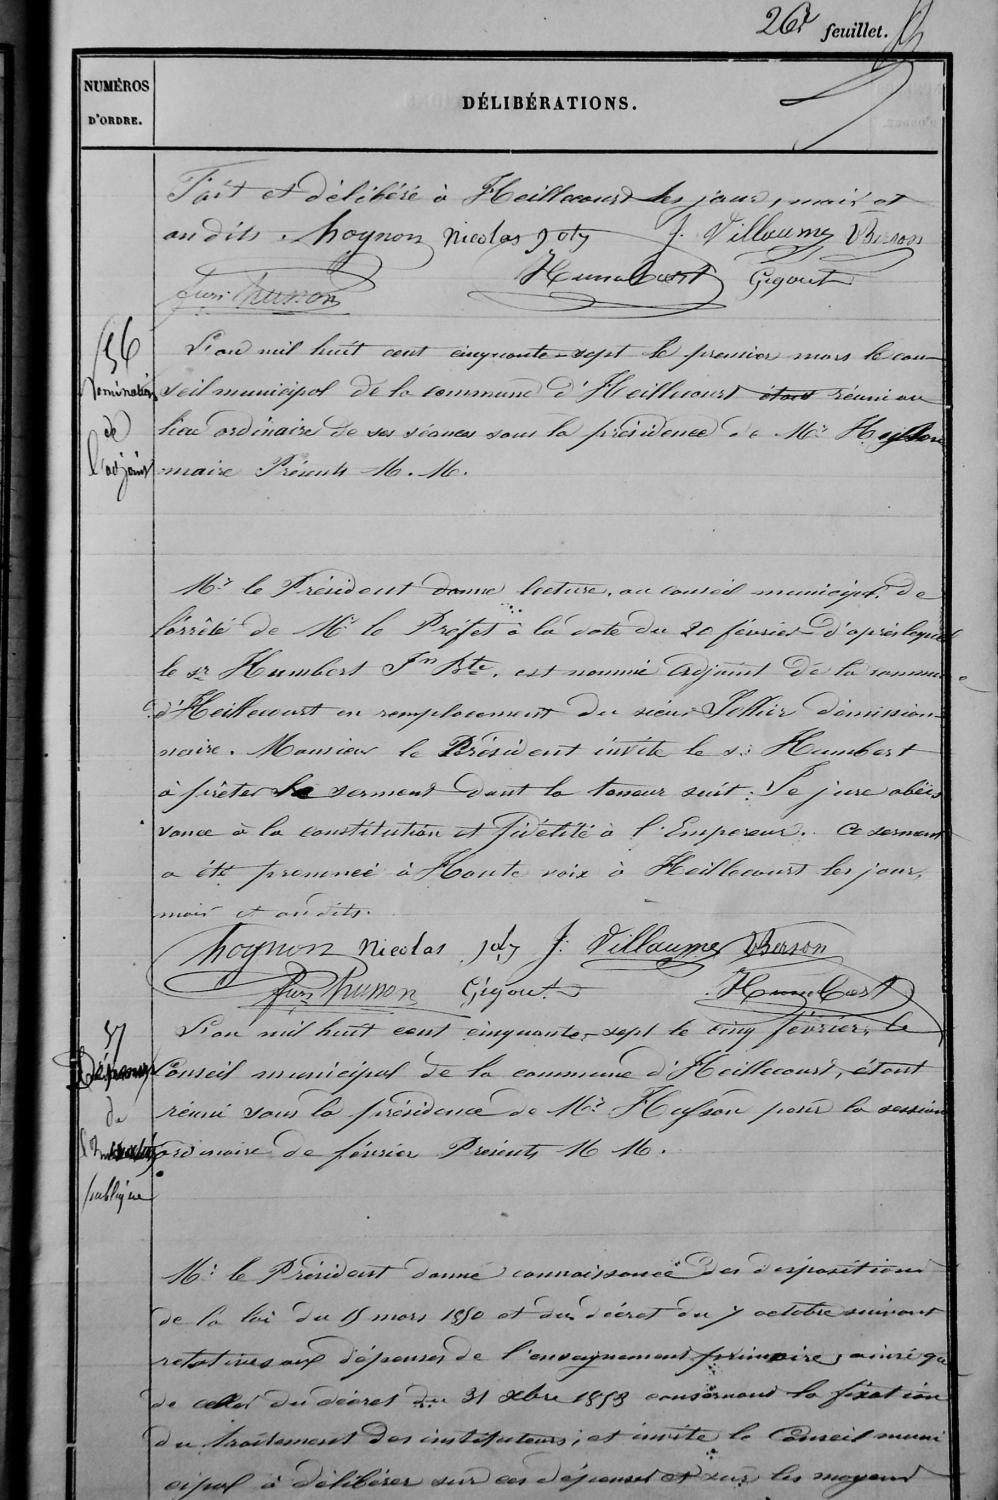 26e feuillet.
NUMÉROS D'ORDRE.
DÉLIBÉRATIONS.
Fait et délibéré à Heillecourt les jour, mois et
an dits. Thognon Nicolas Joly J. Villaume VBerson
Humbert Gigout
husson
36
Nomination
de
l'adjoint
L'an mil huit cent cinquante-sept le premier mars le con-
seil municipal de la commune d'Heillecourt étant réuni au
lieu ordinaire de ses séances sous la présidence de Mr
maire Présents M. M.
Mr le Président donne lecture, au conseil municipal, de
l'arrêté de Mr le Préfet à la date du 20 février d'après lequel
le sr Humbert Jn Bte. est nommé adjoint de la commune
d'Heillecourt en remplacement du sieur démission-
naire. Monsieur le Président invite le sr Humbert
à prêter le serment dont la teneur suit : Je jure obéis
sance à la constitution et fidélité à l'Empereur. Ce serment
a été prononcé à Haute voix à Heillecourt les jour,
mois et an dits.
Thognon Nicolas Joly J. Villaume VBerson
husson Gigout Humbert
37
Dépenses
de
publique
L'an mil huit cent cinquante-sept le cinq février, le
Conseil municipal de la commune d'Heillecourt, étant
réuni sous la présidence de Mr Husson pour la session
ordinaire de février Présents M M.
Mr le Président donne connaissance des dispositions
de la loi du 15 mars 1850 et du décret du 7 octobre suivant
relatives aux dépenses de l'enseignement primaire, ainsi que
de celles du décret du 31 xbre 1853 concernant la fixation
du traitement des instituteurs ; et invite le Conseil muni
cipal à délibérer sur ces dépenses et sur les moyens